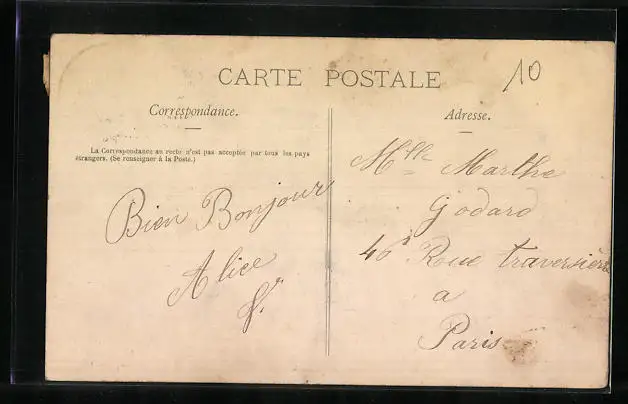 CARTE POSTALE
10
Correspondance.
La Correspondance au recto n'est pas acceptée par tous les pays
étrangers. (Se renseigner à la Poste.)
Bien Bonjour
Alice
Adresse.
Mlle Marthe
Godard
46 Rue traversière
a
Paris